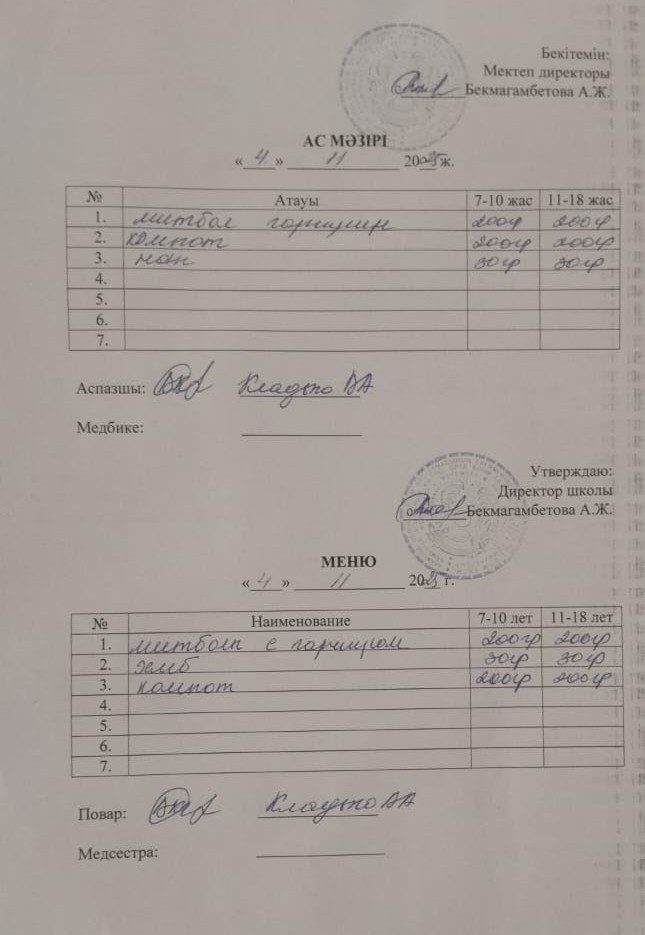 Бекітемін:
Мектеп директоры
Бекмагамбетова А.Ж.
АС МӘЗІРІ
« 4 » 11 2025 ж.
№ Атауы 7-10 жас 11-18 жас
1. митбол гарнирмен 200гр 200гр
2. компот 200гр 200гр
3. нан 30гр 30гр
4.
5.
6.
7.
Аспазшы: Кладько ВА
Медбике:
Утверждаю:
Директор школы
Бекмагамбетова А.Ж.
МЕНЮ
« 4 » 11 2025 г.
№ Наименование 7-10 лет 11-18 лет
1. митболл с гарниром 200гр 200гр
2. хлеб 30гр 30гр
3. компот 200гр 200гр
4.
5.
6.
7.
Повар: Кладько ВА
Медсестра: